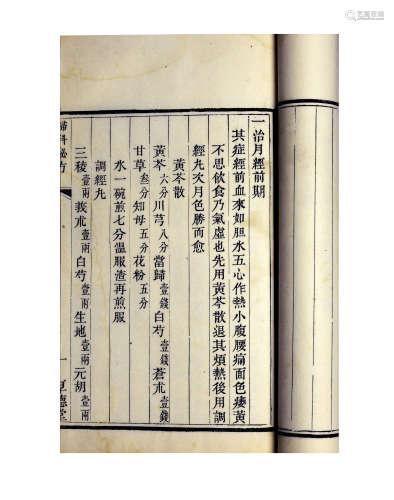 一治月經前期
其症經前血來如胆水五心作熱小腹腰痛面色痿黃
不思飲食乃氣虛也先用黃芩散退其煩熱後用調
經丸次月色勝而愈
黃芩散
黃芩六分川芎八分當歸壹錢白芍壹錢蒼朮壹錢
甘草叁分知母五分花粉五分
水一碗煎七分溫服渣再煎服
調經丸
三稜壹兩莪朮壹兩白芍壹兩生地壹兩元胡壹兩
婦科秘方
一
德堂